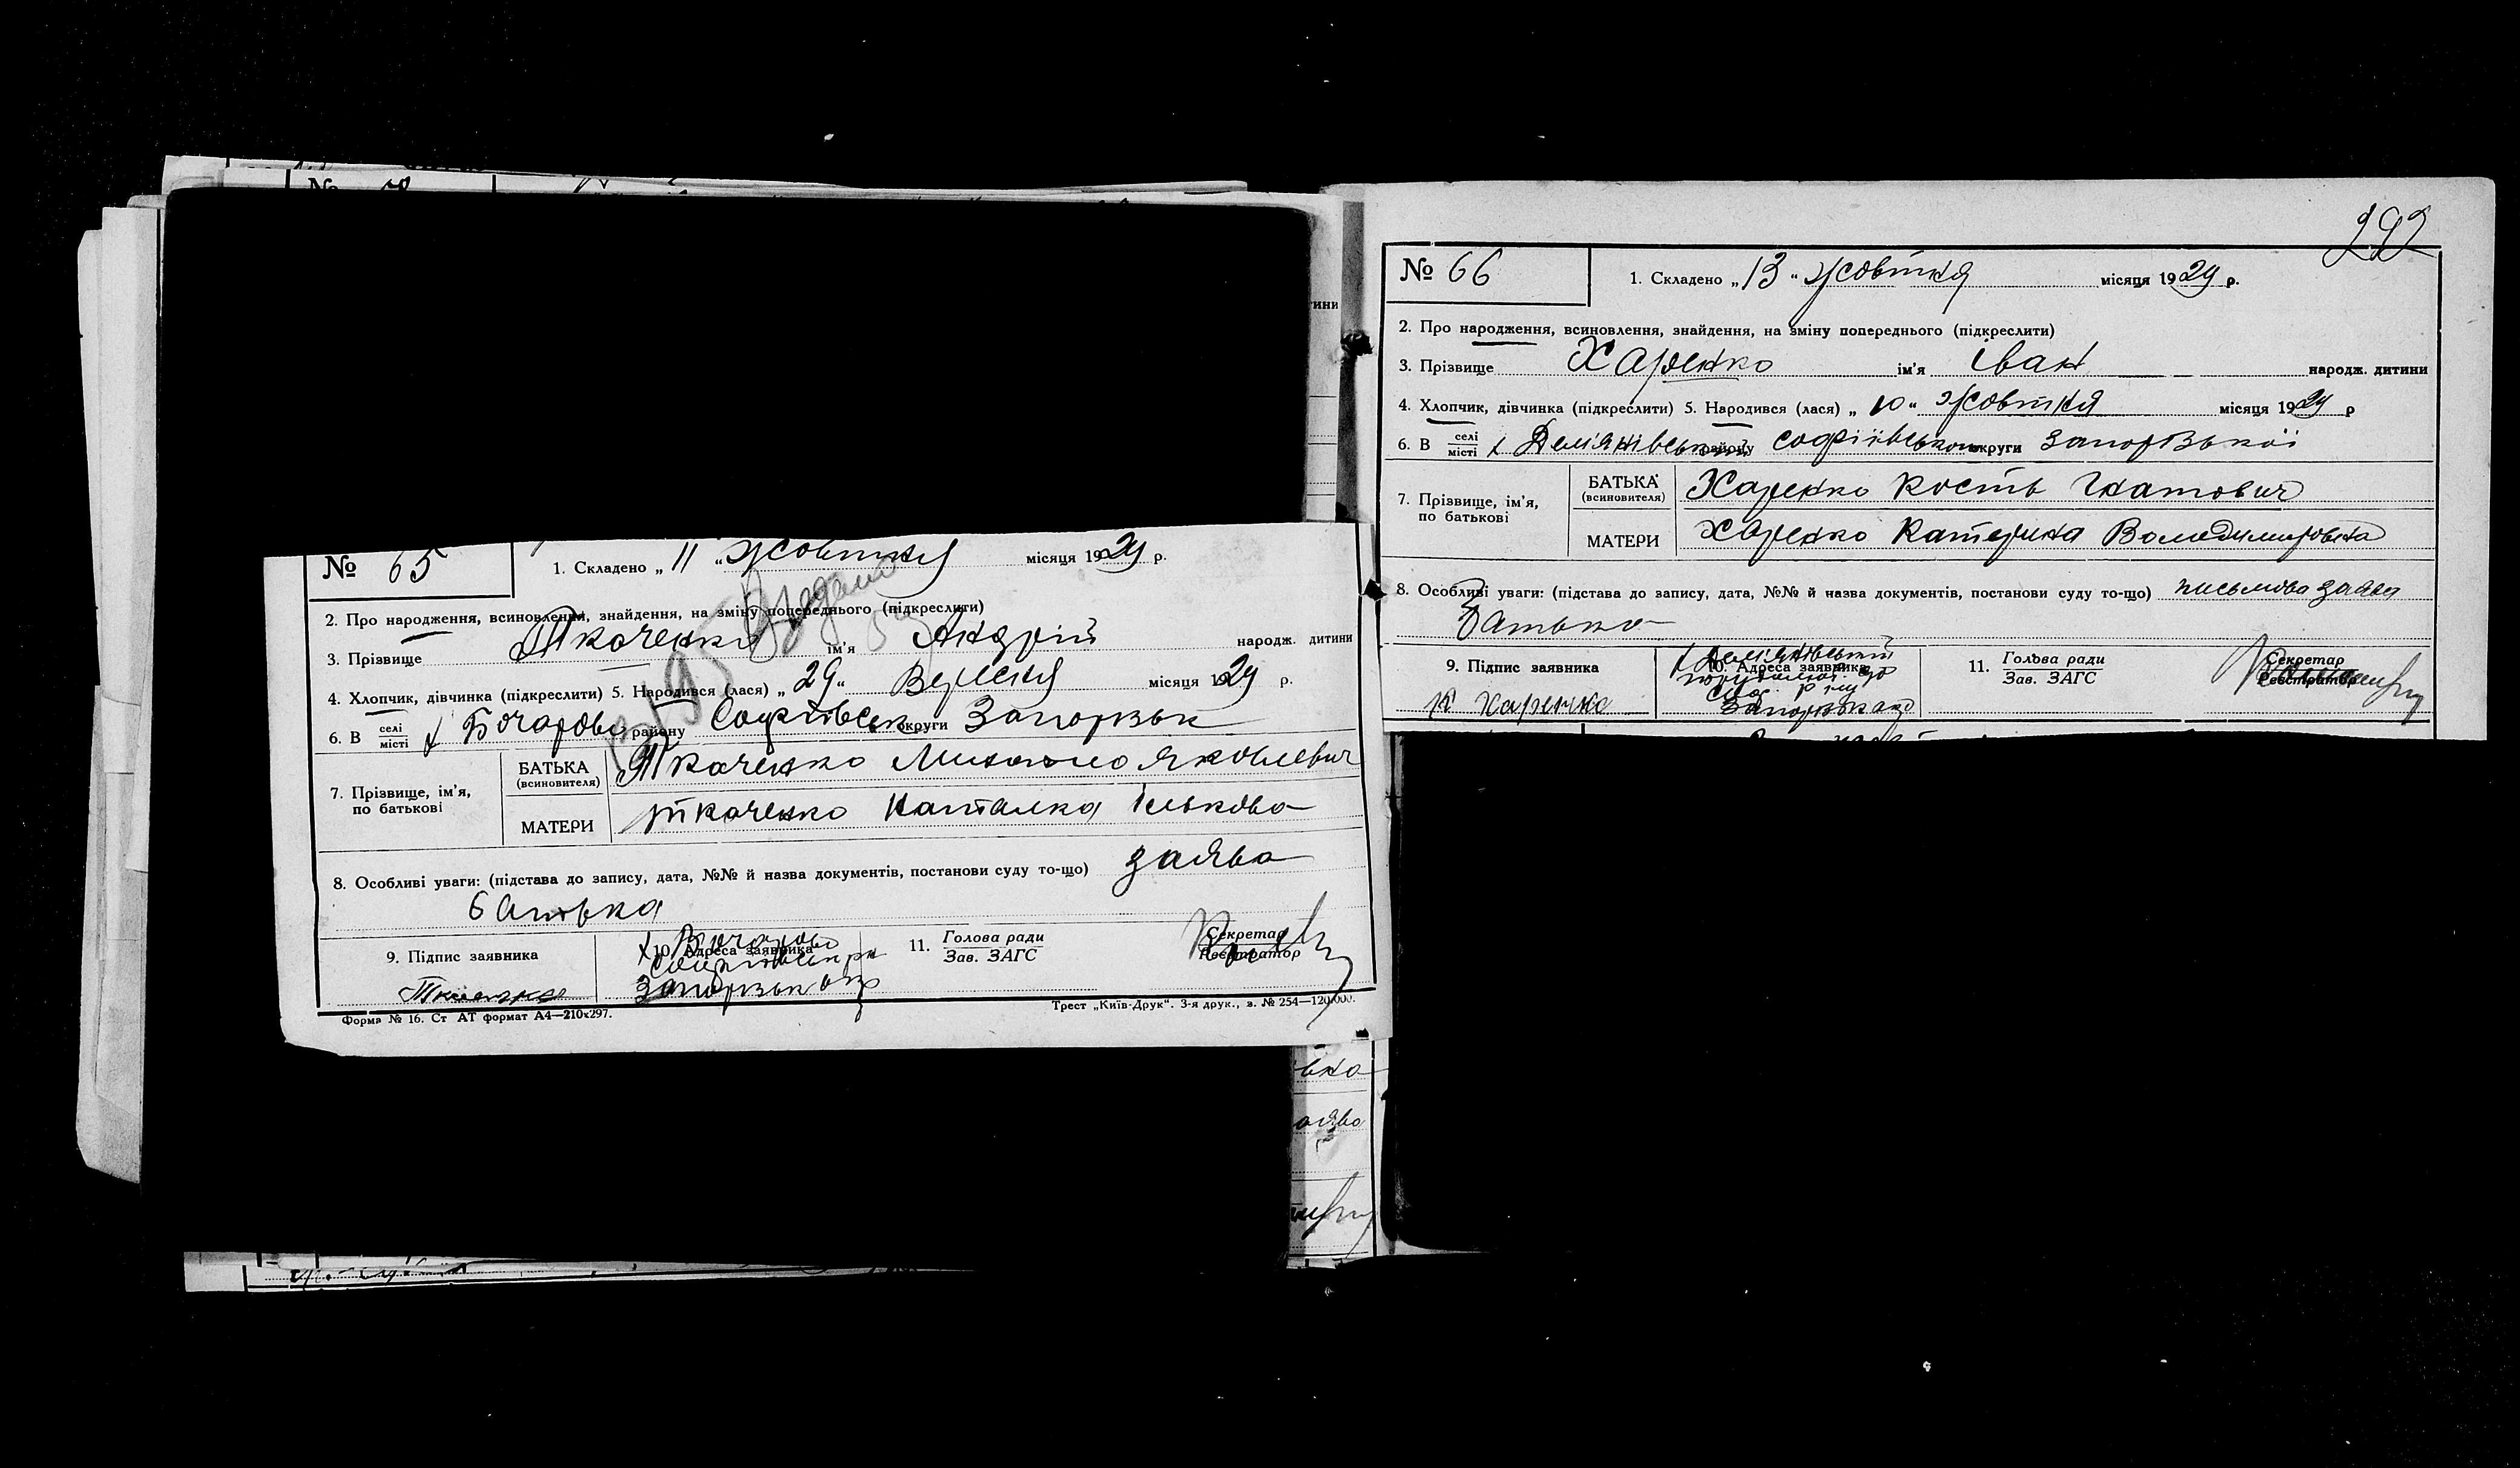 № 65
1. Складено „ 11 “ жовтня місяця 1929 р.
2. Про народження, всиновлення, знайдення, на зміну попереднього (підкреслити)
3. Прізвище Ткаченко ім'я Андрій народж. дитини
4. Хлопчик, дівчинка (підкреслити) 5. Народився (лася) „ 29 “ Вересня місяця 1929 р.
6. В селі місті х Бочарово району Софіївськ округи Запорізьк
7. Прізвище, ім'я, по батькові
БАТЬКА (всиновителя) Ткаченко Михайло Яковлевич
МАТЕРИ Ткаченко Наталка Ількова
8. Особливі уваги: (підстава до запису, дата, №№ й назва документів, постанови суду то-що) заява
батька
9. Підпис заявника
Ткаченко
10. Адреса заявника
х Бочарово
Запорізьк окр
11. Голова ради Зав. ЗАГС
Секретар Реєстратор
Форма № 16. Ст АТ формат А4—210х297.
Трест „Київ-Друк“. 3-я друк., з. № 254—120.000.
Видано
292
№ 66
1. Складено „ 13 “ жовтня місяця 1929 р.
2. Про народження, всиновлення, знайдення, на зміну попереднього (підкреслити)
3. Прізвище Харенко ім'я Іван народж. дитини
4. Хлопчик, дівчинка (підкреслити) 5. Народився (лася) „ 10 “ жовтня місяця 1929 р
6. В селі місті х Дем'янівський району Софіївського округи Запорізької
7. Прізвище, ім'я, по батькові
БАТЬКА (всиновителя) Харенко Кость Гнатович
МАТЕРИ Харенко Катерина Володимировна
8. Особливі уваги: (підстава до запису, дата, №№ й назва документів, постанови суду то-що) письмова заява
Батька
9. Підпис заявника
К Харенко
10. Адреса заявника
х Дем'янівський
11. Голова ради Зав. ЗАГС
Секретар Реєстратор